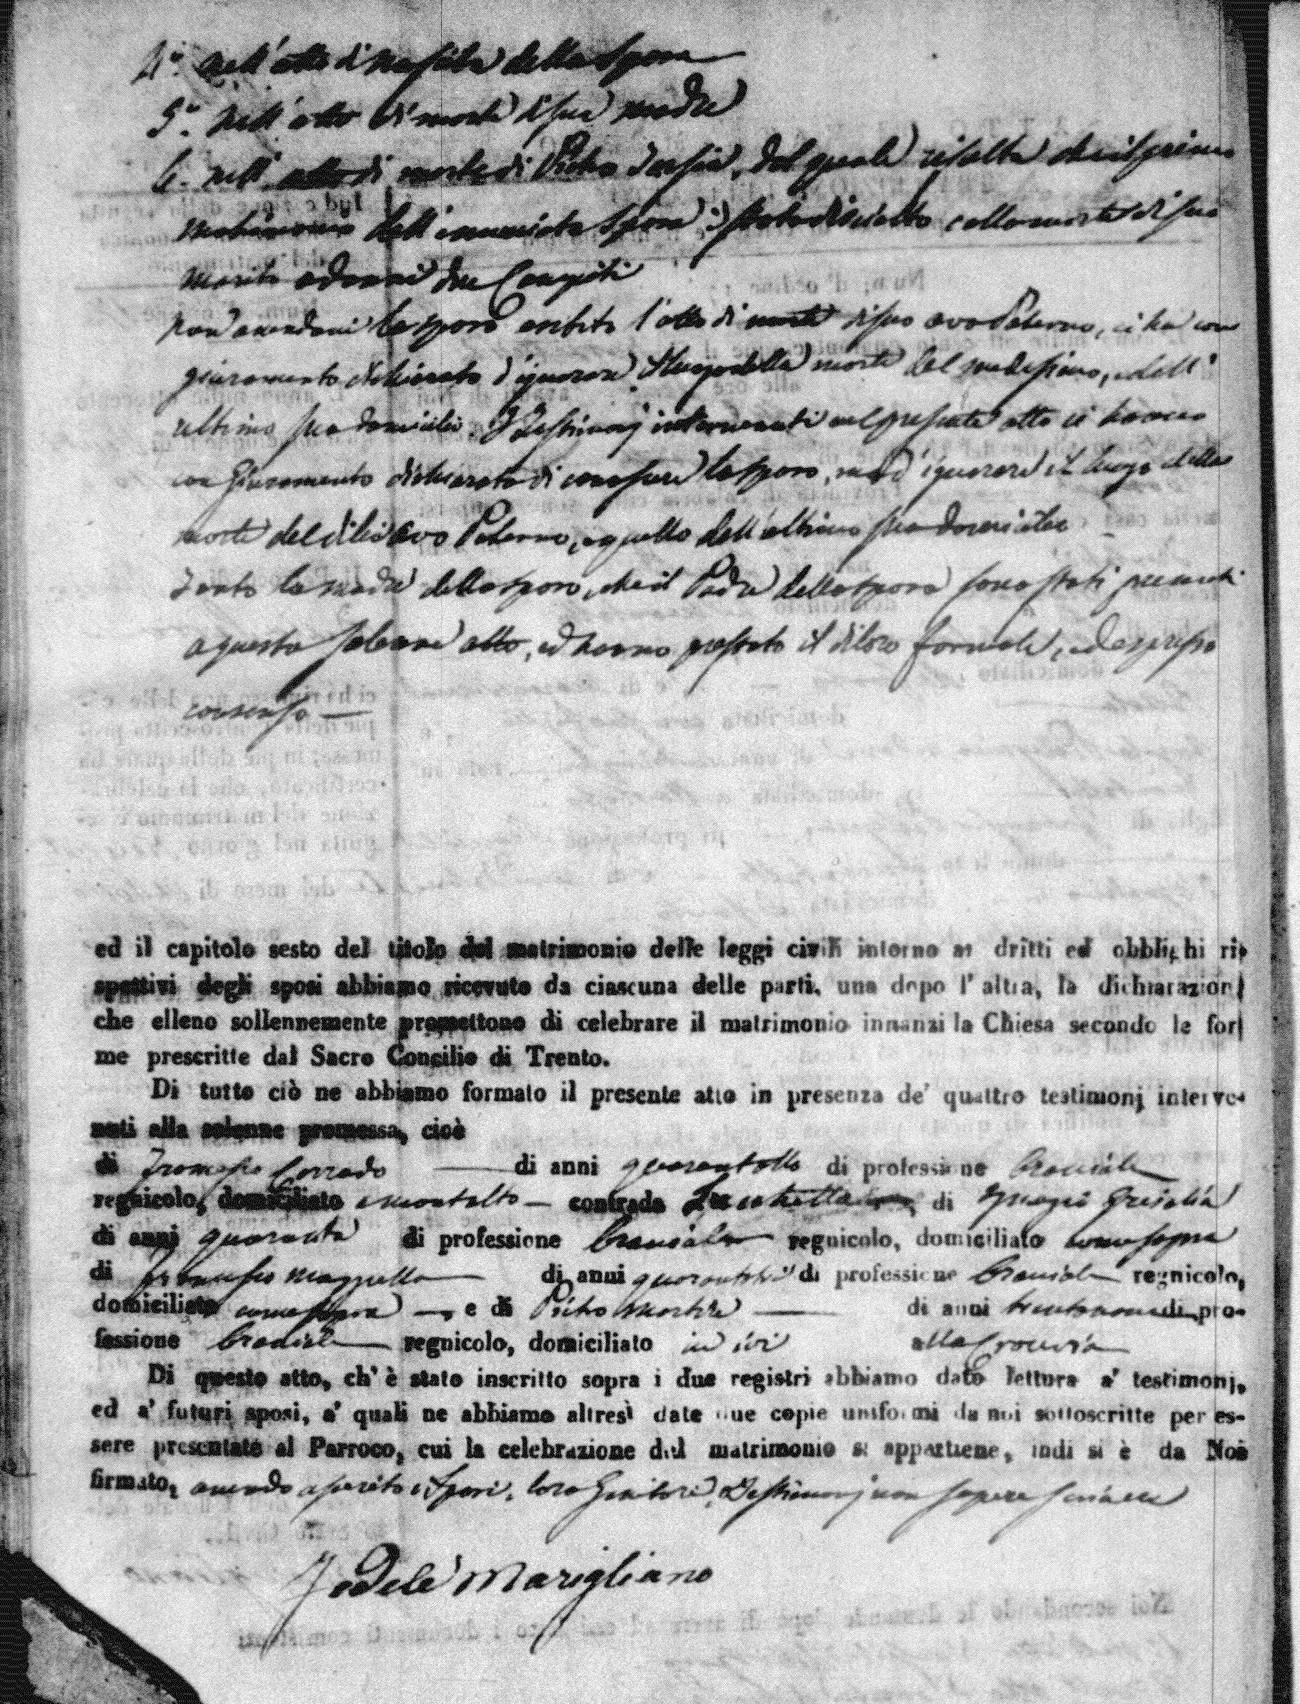 4.° Nell'atto di nascita della Sposa
5.° Nell'atto di morte di sua madre
6. Nell'atto di morte di Pietro dal quale risulta che il primo
matrimonio dell' Sposa è stato disciolto colla morte di suo
marito
Non avendoci la sposa esibito l'atto di morte di suo avo Paterno, ci ha con
giuramento dichiarato d'ignorare il luogo della morte del medesimo, e dell'
ultimo suo domicilio. I Testimonj intervenuti nel presente atto ci hanno
con Giuramento dichiarato di conoscere la sposa, ma d'ignorare il luogo della
morte del di lei avo Paterno, e quello dell'ultimo suo domicilio
Tanto la madre dello sposo, che il Padre della sposa sono stati presenti
a questo solenne atto, ed hanno prestato il di loro formale, ed espresso
consenso —
ed il capitolo sesto del titolo del matrimonio delle leggi civili intorno ai dritti ed obblighi ri-
spettivi degli sposi abbiamo ricevuto da ciascuna delle parti, una dopo l'altra, la dichiarazione
che elleno sollennemente promettono di celebrare il matrimonio innanzi la Chiesa secondo le for-
me prescritte dal Sacro Concilio di Trento.
Di tutto ciò ne abbiamo formato il presente atto in presenza de' quattro testimonj interve-
nuti alla solenne promessa, cioè
di Tommaso Corrado — di anni quarantotto di professione bracciale
regnicolo, domiciliato a Montalto — contrada di Grisolia
di anni quaranta di professione bracciale regnicolo, domiciliato come sopra
di Francesco Mazzulla — di anni di professione bracciale regnicolo,
domiciliato come sopra — , e di Pietro Martire — di anni trentanove di pro-
fessione bracciale regnicolo, domiciliato ivi alla
Di questo atto, ch'è stato inscritto sopra i due registri abbiamo dato lettura a' testimonj,
ed a' futuri sposi, a' quali ne abbiamo altresì date due copie uniformi da noi sottoscritte per es-
sere presentate al Parroco, cui la celebrazione del matrimonio si appartiene, indi si è da Noi
firmato, avendo asserito i Sposi, loro Genitori, e Testimonj non sapere scrivere
Fedele Marigliano